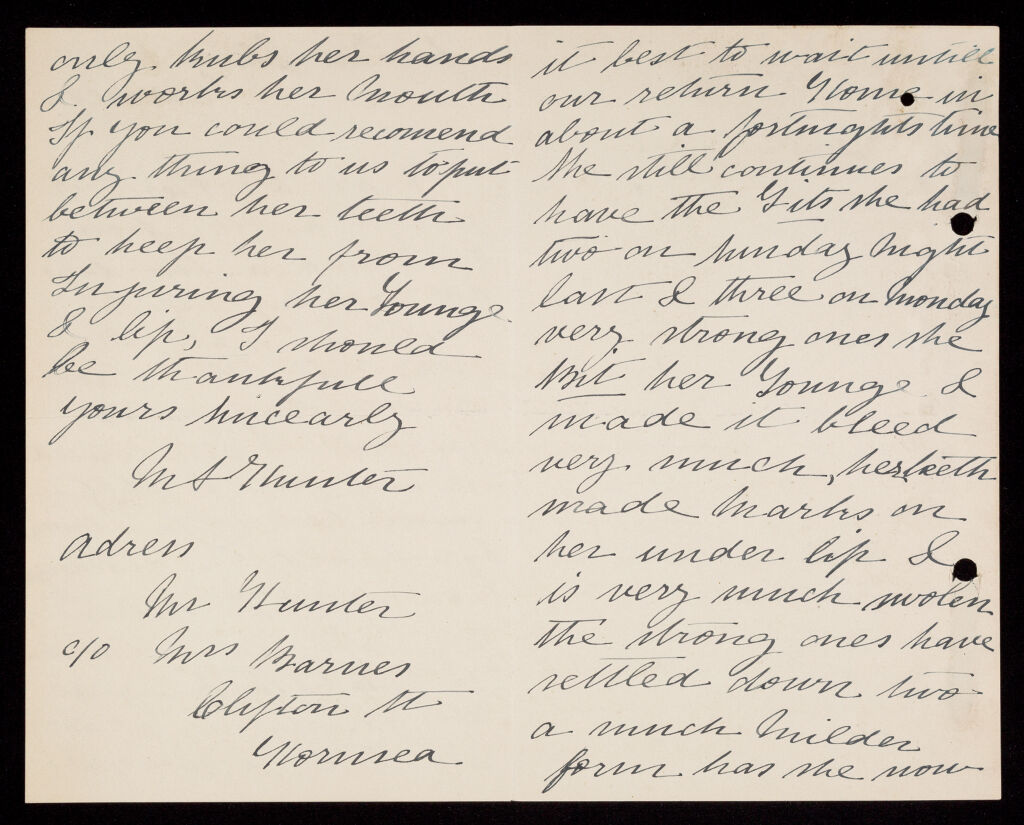 only Rubs her hands
& works her Mouth
If you could recomend
any thing to us to put
between her teeth
to keep her from
Injuring her Tounge
& lip, I should
be thankfull
yours Sincearly
Mr Hunter
Adress
Mr Hunter
c/o Mrs Barnes
Clifton St
Hornsea
it best to wait untill
our return Home in
about a fortnights time
She still continues to
have the Fits she had
two on Sunday Night
last & three on Monday
very strong ones she
Bit her Tounge &
made it bleed
very much, her teeth
made Marks on
her under lip &
is very much swolen
the strong ones have
settled down two
a much Milder
form has she now